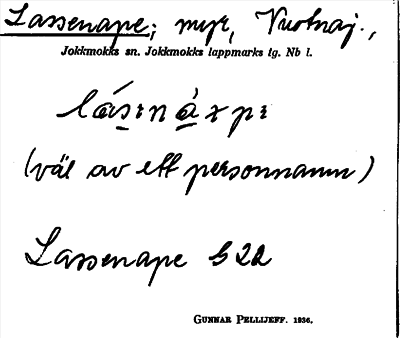 Lassenape; myr, Vuotnaj.,
Jokkmokks sn. Jokkmokks lappmarks tg. Nb l.
lás:nàxpɛ
(väl av ett personnamn)
Lassenape S 22
GUNNAR PELLIJEFF. 1936.